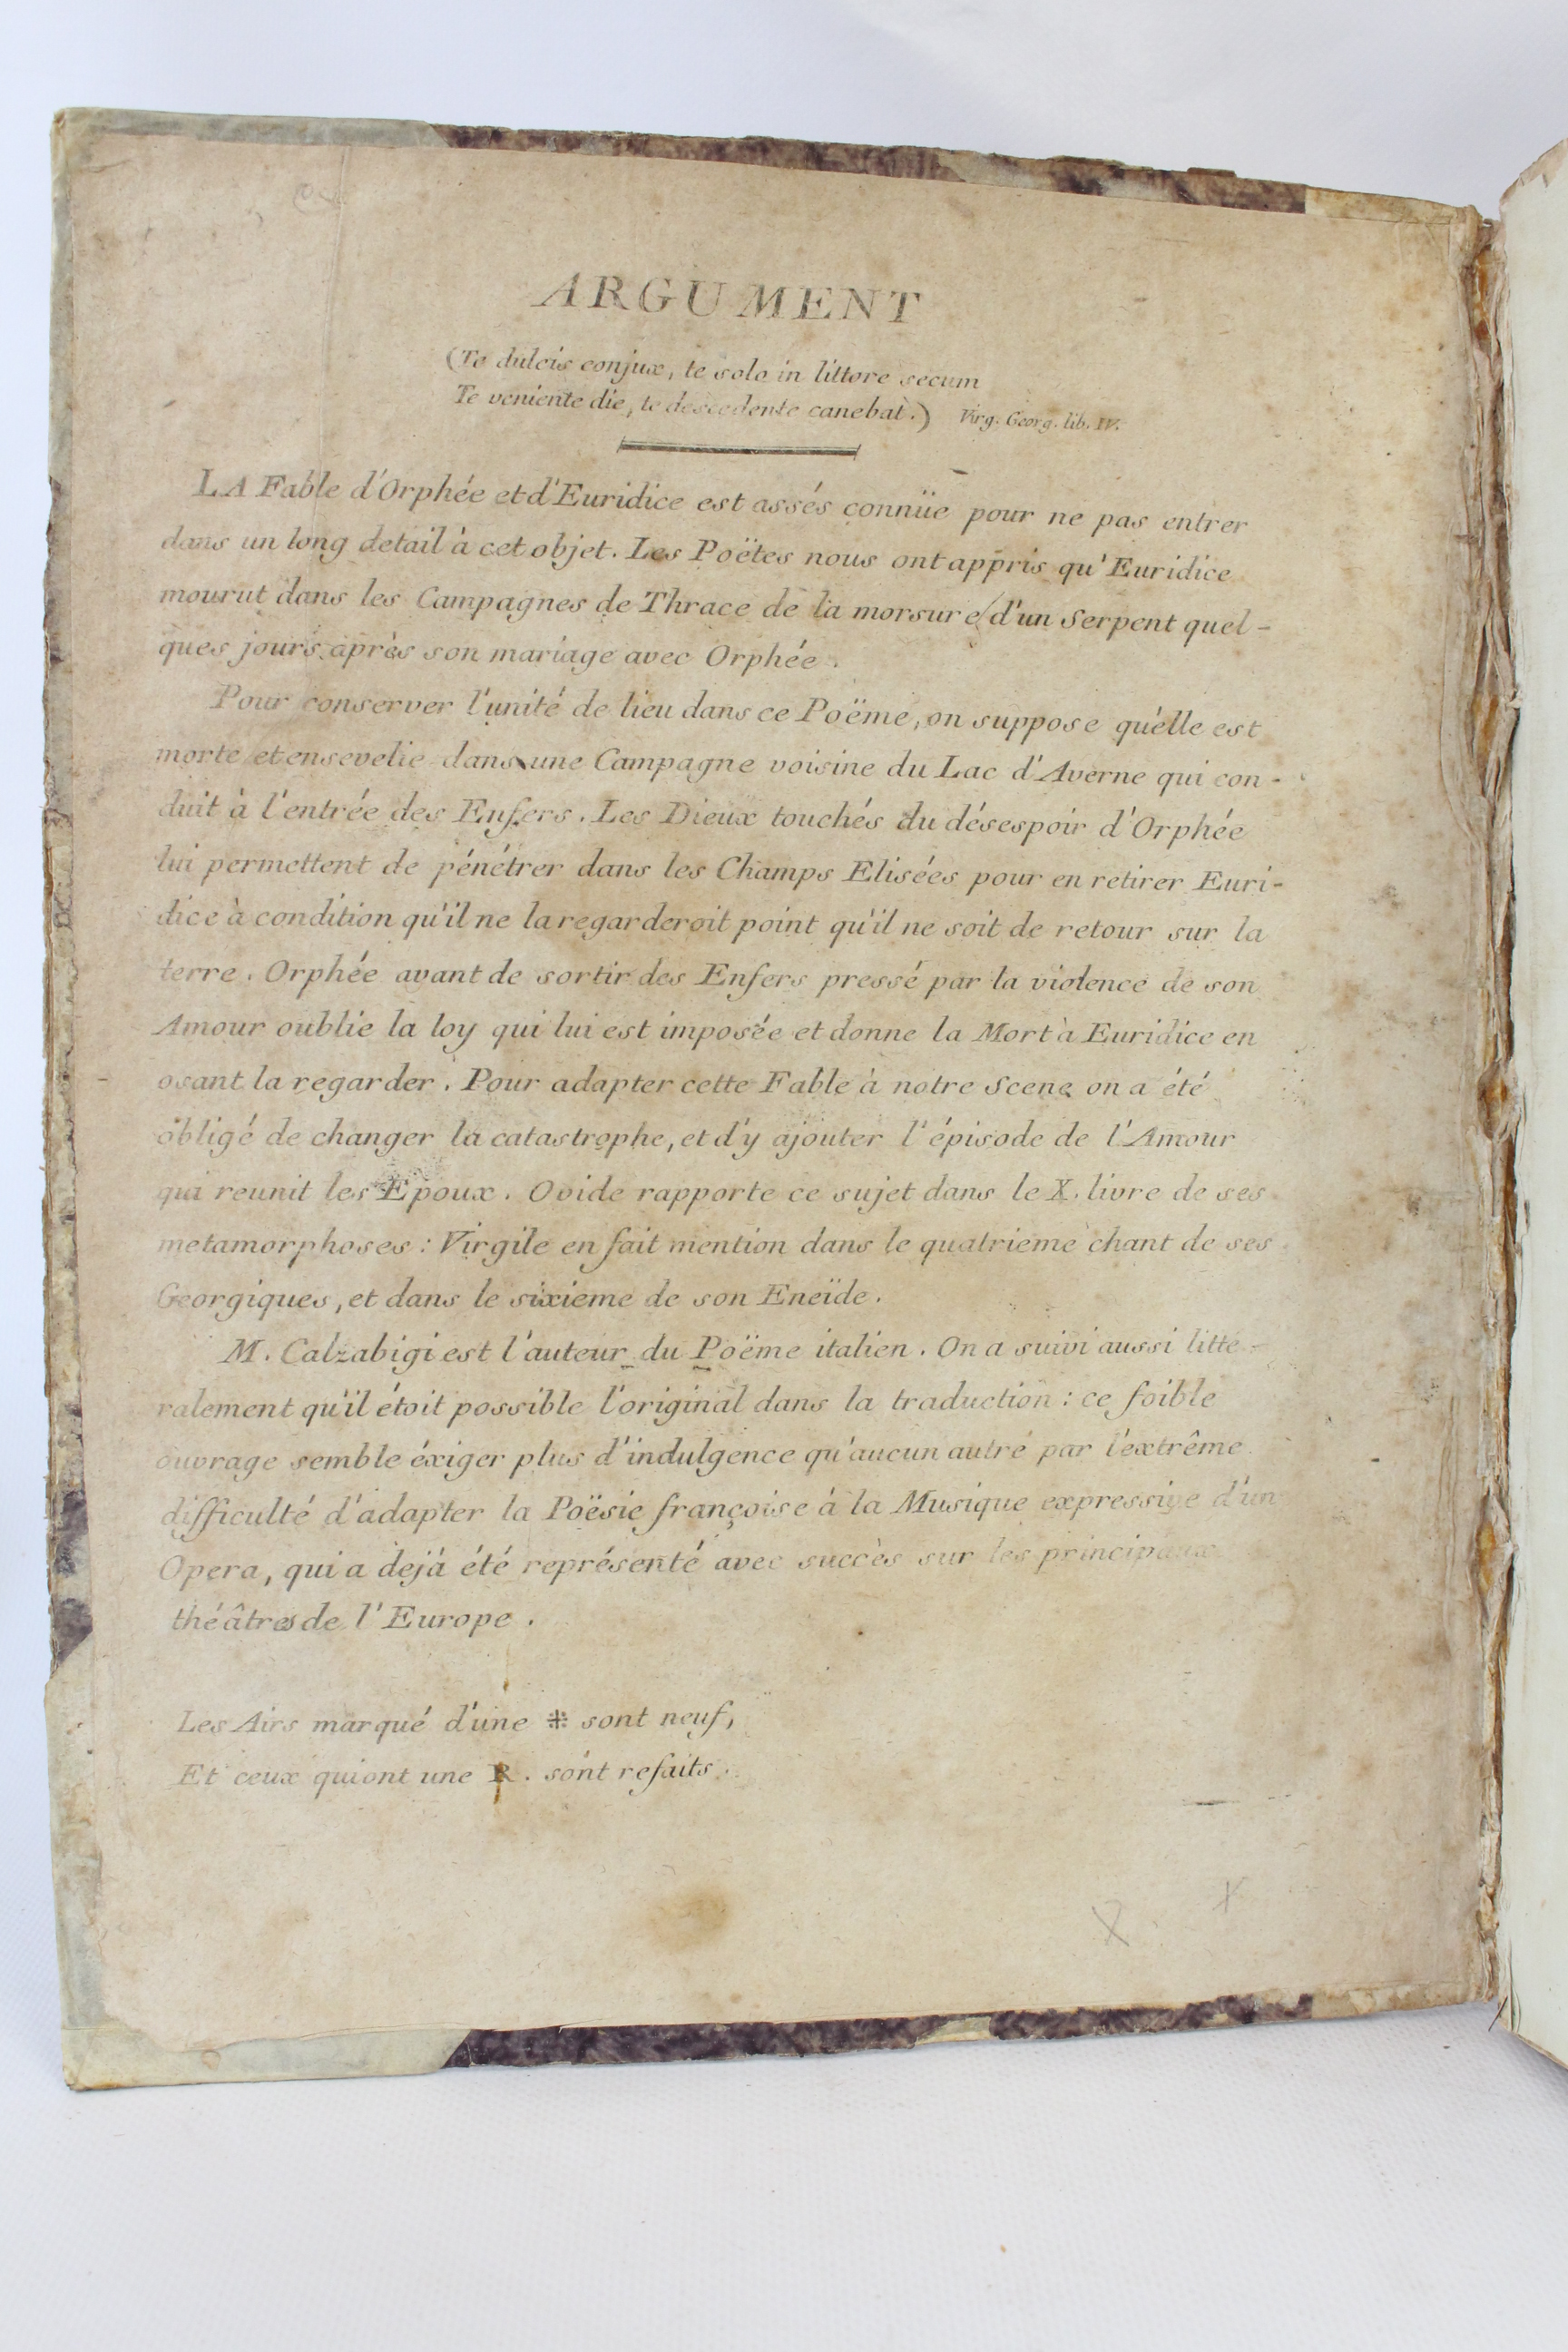 ARGUMENT
(Te dulcis conjux, te solo in littore secum
Te veniente die, te descedente canebat.) Virg. Georg. lib. IV.
LA Fable d'Orphée et d'Euridice est assés connüe pour ne pas entrer
dans un long detail à cet objet. Les Poëtes nous ont appris qu'Euridice
mourut dans les Campagnes de Thrace de la morsure d'un Serpent quel-
ques jours après son mariage avec Orphée.
Pour conserver l'unité de lieu dans ce Poëme, on suppose qu'elle est
morte et ensevelie dans une Campagne voisine du Lac d'Averne qui con-
duit à l'entrée des Enfers. Les Dieux touchés du désespoir d'Orphée
lui permettent de pénétrer dans les Champs Elisées pour en retirer Euri-
dice à condition qu'il ne la regarderoit point qu'il ne soit de retour sur la
terre. Orphée avant de sortir des Enfers pressé par la violence de son
Amour oublie la loy qui lui est imposée et donne la Mort à Euridice en
osant la regarder. Pour adapter cette Fable à notre Scene on a été
obligé de changer la catastrophe, et d'y ajouter l'épisode de l'Amour
qui reunit les Epoux. Ovide rapporte ce sujet dans le X. livre de ses
metamorphoses: Virgile en fait mention dans le quatrieme chant de ses
Georgiques, et dans le sixieme de son Eneïde.
M. Calzabigi est l'auteur du Poëme italien. On a suivi aussi litte-
ralement qu'il étoit possible l'original dans la traduction: ce foible
ouvrage semble éxiger plus d'indulgence qu'aucun autre par l'extrême
difficulté d'adapter la Poësie françoise à la Musique expressive d'un
Opera, qui a dejà été représenté avec succès sur les principaux
théâtres de l'Europe.
Les Airs marqué d'une ※ sont neuf,
Et ceux qui ont une R. sont refaits.